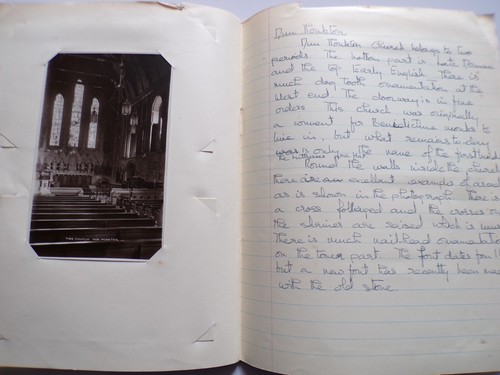 Nun Monkton
Nun Monkton Church belongs to two
periods. The bottom part is late Norman
and the top Early English. There is
much dog tooth ornamentation at the
West end. The doorway is in five
orders. This church was originally
a convent for Benedictine monks to
live in, but what remains to-day
is only the name of the
Round the walls inside the church
there are excellent examples of
as is shown in the photograph. There is
a cross foliaged and the crosses
the shrines are raised which is
There is much nail-head ornamentation
on the tower part. The font dates from
but a new font has recently been
with the old stone.
THE CHURCH, NUN MONKTON